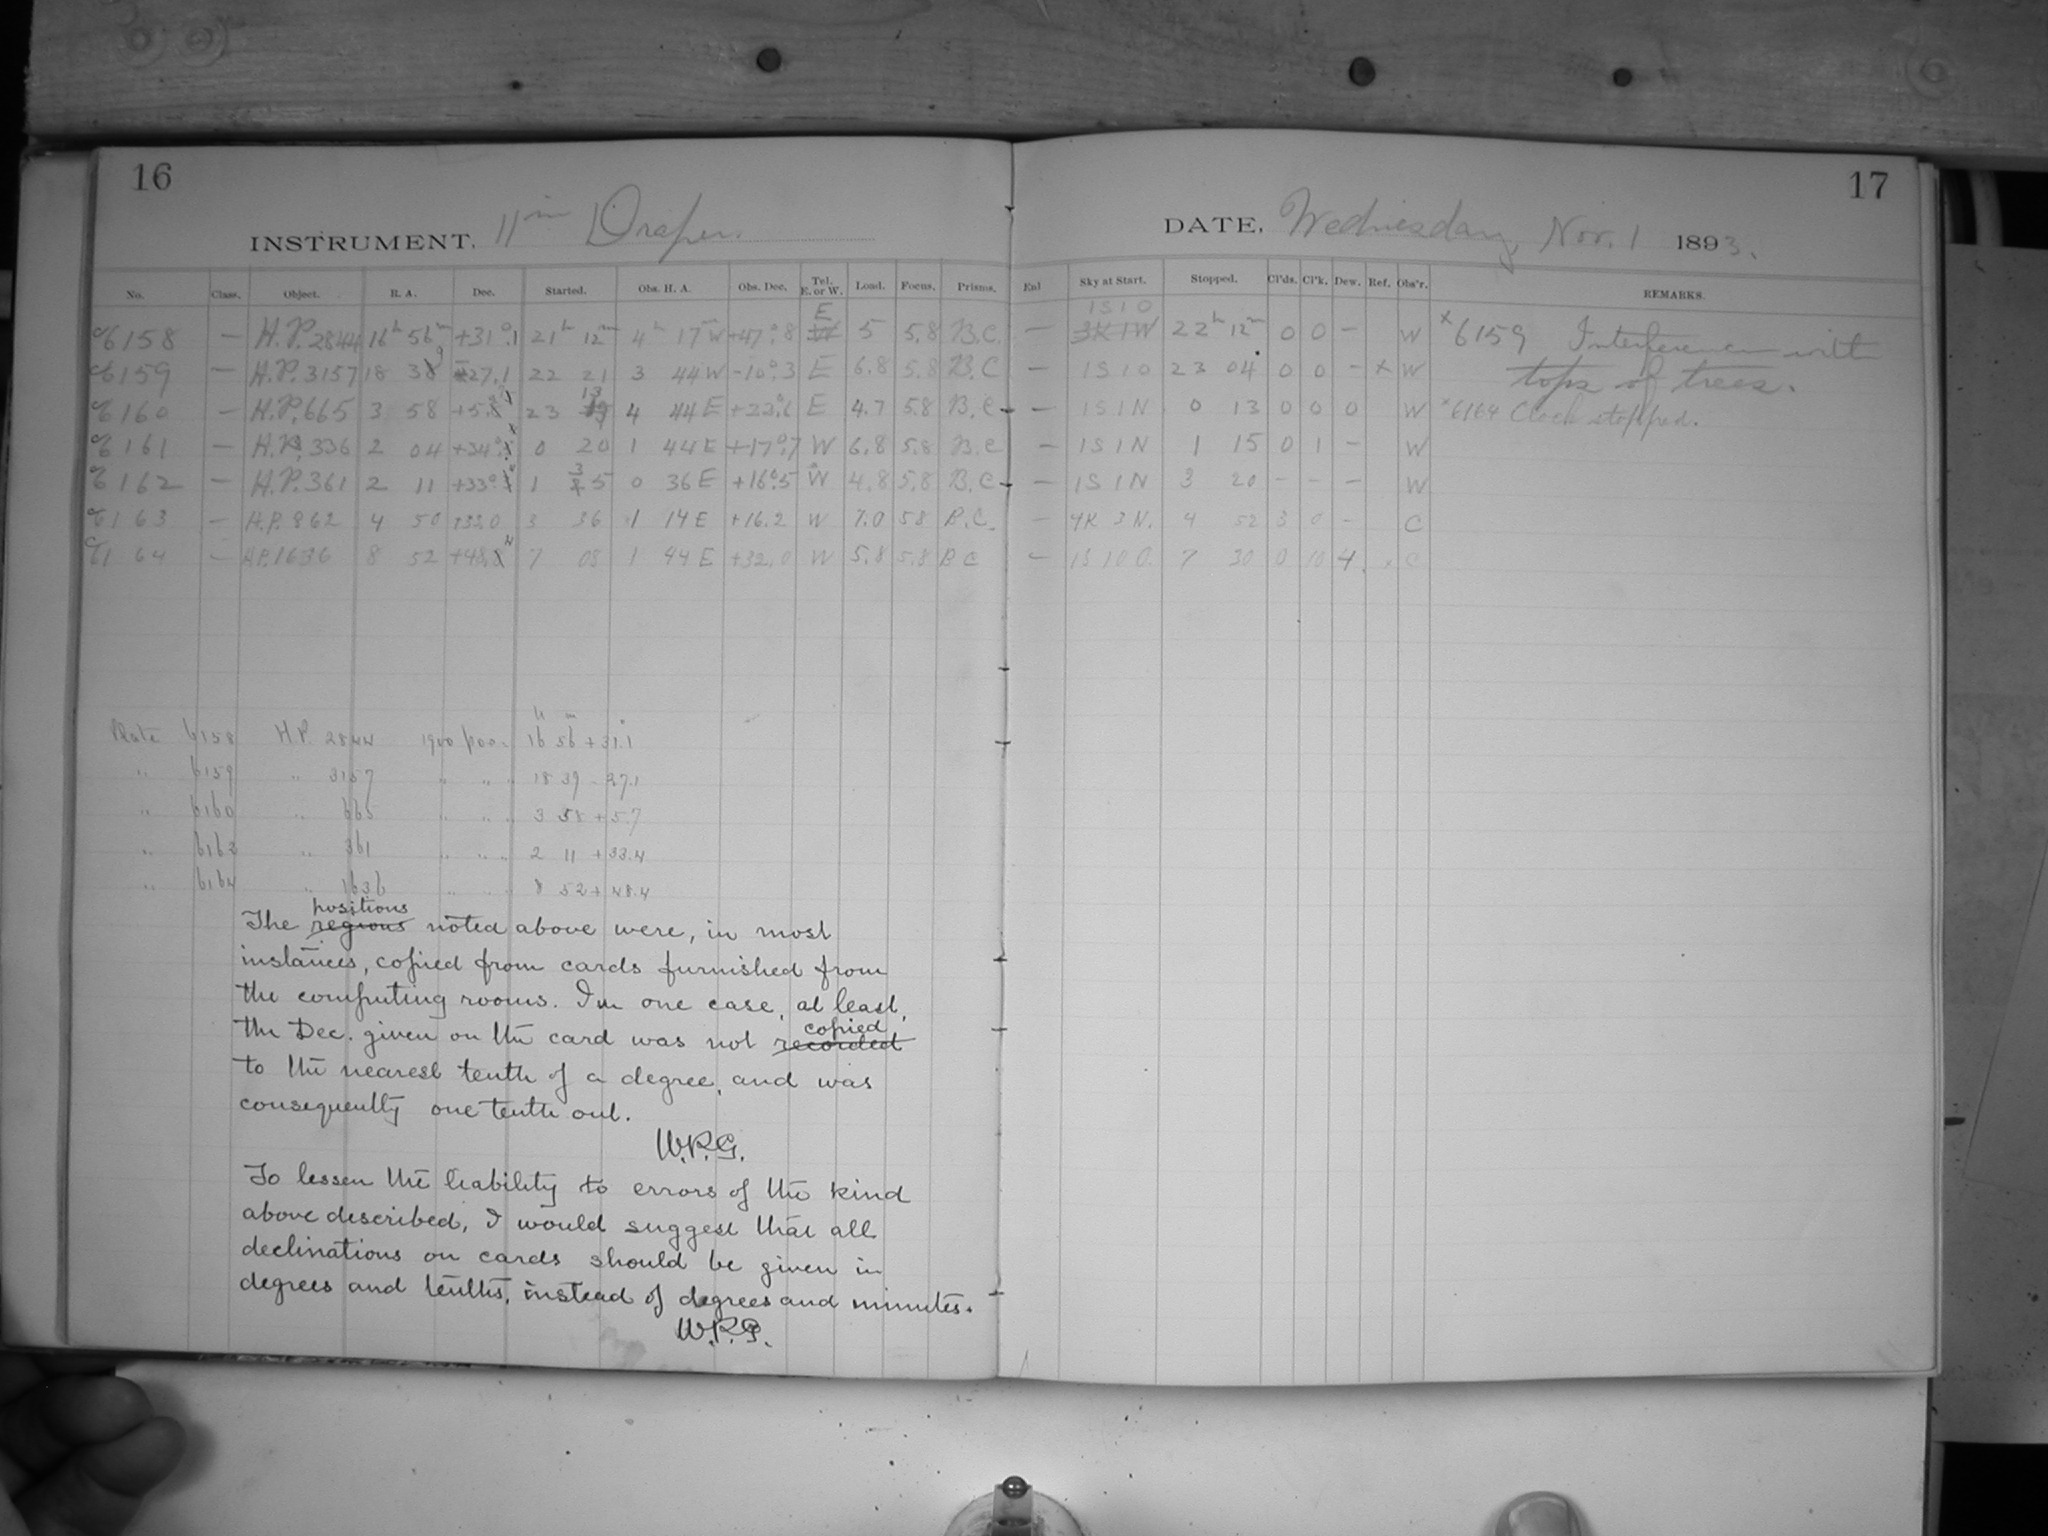 16
INSTRUMENT. 11in Draper.
No. Class. Object. R. A. Dec. Started. Obs. H. A. Obs. Dec. Tel. E. or W. Load. Focus. Prisms.
C6158 — H.P. 2844 16h 56m +31°.1 21h 12m 4h 17m W +47°.8 E 5 5.8 B.C.
C6159 — H.P. 3157 18 39 -27.1 22 21 3 44 W -10°.3 E 6.8 5.8 B.C
C6160 — H.P. 665 3 58 23 13 4 44 E E 4.7 5.8 B.C
C6161 — H.P. 336 2 04 0 20 1 44 E +17°.7 W 6.8 5.8 B.C
C6162 — H.P. 361 2 11 1 35 0 36 E +16°.5 W 4.8 5.8 B.C
C6163 — H.P. 862 4 50 +33.0 3 36 1 14 E +16.2 W 7.0 5.8 B.C.
C6164 — H.P. 1636 8 52 7 08 1 44 E +32.0 W 5.8 5.8 B C
Plate 6158 H.P. 2844 1900 pos. 16h 56m +31°.1
" 6159 " 3157 " " 18 39 -27.1
" 6160 " 665 " " 3 58 +5.7
" 6162 " 361 " " 2 11 +33.4
" 6164 " 1636 " " 8 52 +48.4
positions
The regions noted above were, in most
instances, copied from cards furnished from
the computing rooms. In one case, at least,
copied
the Dec. given on the card was not recorded
to the nearest tenth of a degree, and was
consequently one tenth out.
W.P.G.
To lessen the liability to errors of the kind
above described, I would suggest that all
declinations on cards should be given in
degrees and tenths, instead of degrees and minutes.
W.P.G.
17
DATE, Wednesday, Nov. 1 1893.
Sky at Start. Stopped. Cl'ds. Cl'k. Dew. Ref. Obs'r. REMARKS.
1S10
— 3K1W 22h 12m 0 0 - W x6159 Interference with
— 1S10 23 04 0 0 - x W tops of trees.
— 1S1N 0 13 0 0 0 W x6164 Clock stopped.
— 1S1N 1 15 0 1 - W
— 1S1N 3 20 - - - W
— 4K 3N. 4 52 3 0 - C
— 1S10 7 30 0 10 4. C